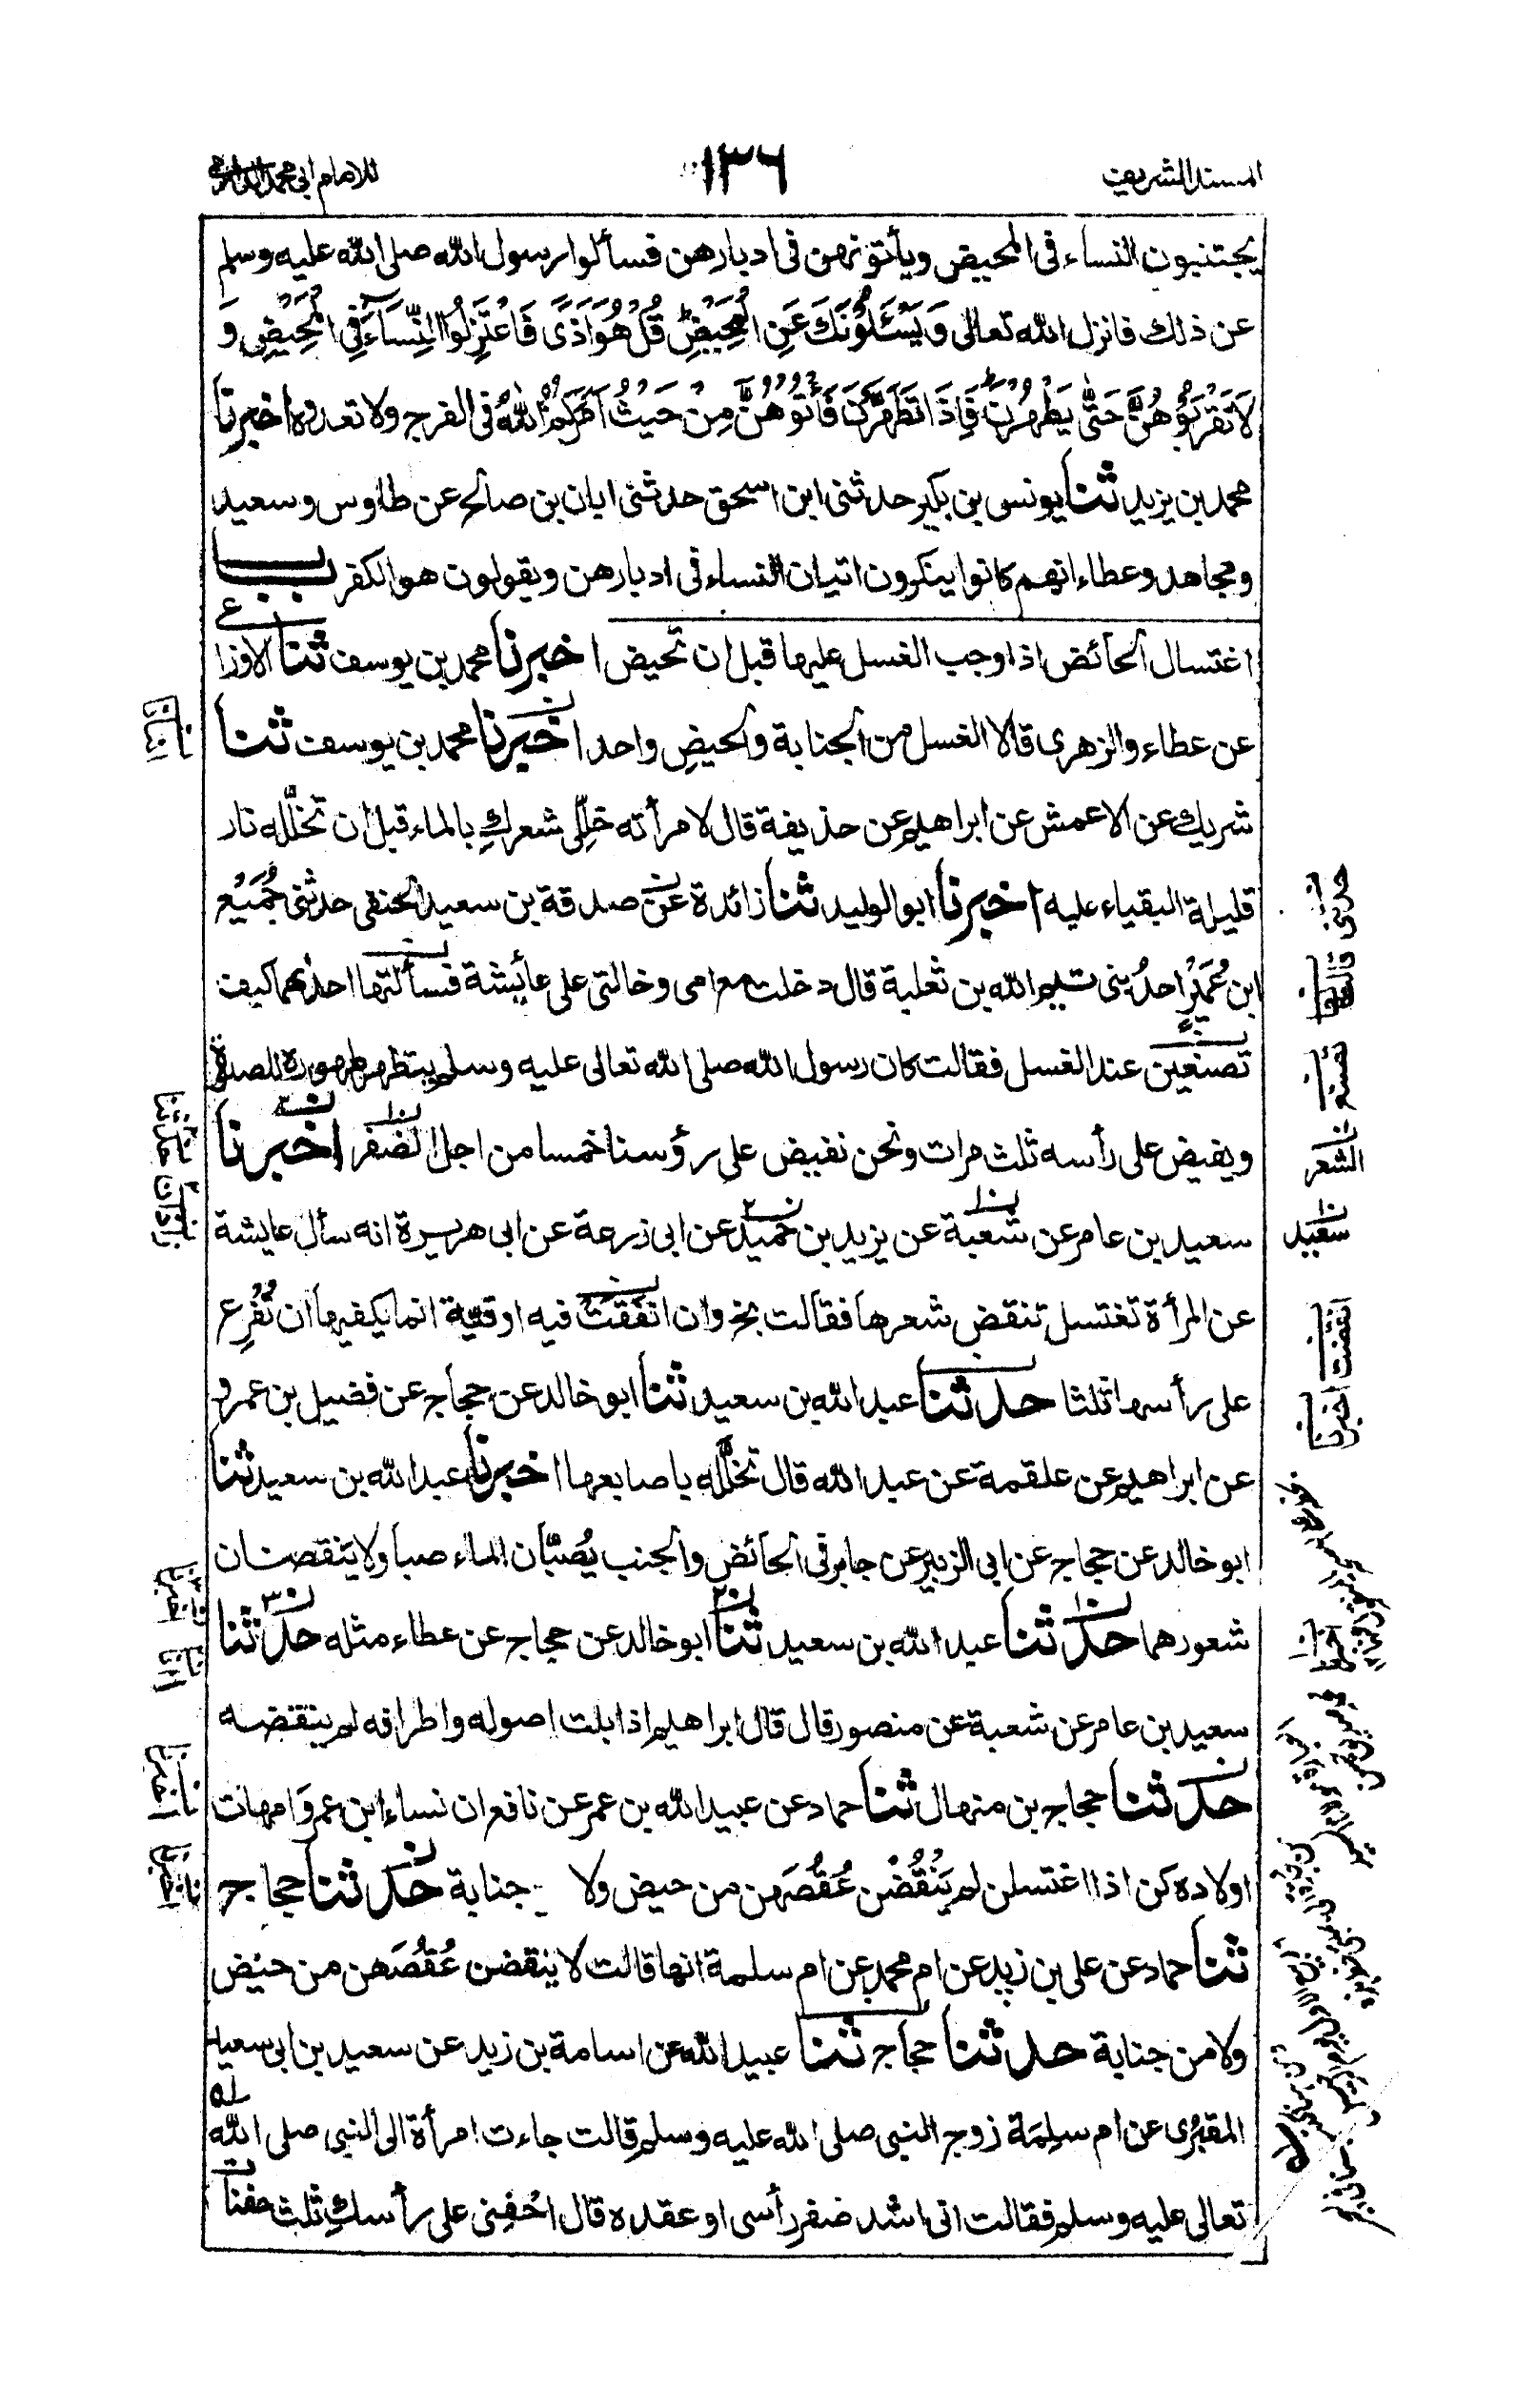 المسند الشريف
١٣٦
للامام ابى محمد الدارمى
يجتنبون النساء فى المحيض ويأتونهن فى ادبارهن فسألوا رسول الله صلى الله عليه وسلم
عن ذلك فانزل الله تعالى وَيَسْئَلُوْنَكَ عَنِ الْمَحِيْضِ قُلْ هُوَ اَذًى فَاعْتَزِلُوا النِّسَآءَ فِى الْمَحِيْضِ وَ
لَا تَقْرَبُوْهُنَّ حَتّٰى يَطْهُرْنَ فَاِذَا تَطَهَّرْنَ فَأْتُوْهُنَّ مِنْ حَيْثُ اَمَرَكُمُ اللّٰهُ فى الفرج ولا تعدوه اخبرنا
محمد بن يزيد ثنا يونس بن بكير حدثنى ابن اسحق حدثنى ابان بن صالح عن طاوس وسعيد
ومجاهد وعطاء انهم كانوا ينكرون اتيان النساء فى ادبارهن ويقولون هو الكفر باب
اغتسال الحائض اذا وجب الغسل عليها قبل ان تحيض اخبرنا محمد بن يوسف ثنا الاوزاعى
عن عطاء والزهرى قالا الغسل من الجنابة والحيض واحد اخبرنا محمد بن يوسف ثنا
شريك عن الاعمش عن ابراهيم عن حذيفة قال لامرأته خلِّلى شعركِ بالماء قبل ان تخلّله نار
قليلة البقياء عليه اخبرنا ابو الوليد ثنا زائدة عن صدقة بن سعيد الحنفى حدثنى جُمَيْع
ابن عُمَيْر احدُ بنى تيم الله بن ثعلبة قال دخلت مع امى وخالتى على عائشة فسألتها احدٰهما كيف
تصنعين عند الغسل فقالت كان رسول الله صلى الله تعالى عليه وسلم يتطهر طهوره للصلوة
ويفيض على رأسه ثلث مرات ونحن نفيض على رؤسنا خمسا من اجل الضفر اخبرنا
سعيد بن عامر عن شعبة عن يزيد بن حميد عن ابى زرعة عن ابى هريرة انه سأل عايشة
عن المرأة تغتسل تنقض شعرها فقالت بخ وان انفقت فيه اوقية انما يكفيها ان تُفْرِغ
على رأسها ثلثا حدثنا عبد الله بن سعيد ثنا ابو خالد عن حجاج عن فضيل بن عمرو
عن ابراهيم عن علقمة عن عبد الله قال تخلّله باصابعها اخبرنا عبد الله بن سعيد ثنا
ابو خالد عن حجاج عن ابى الزبير عن جابر فى الحائض والجنب يُصُبَّان الماء صبا ولا ينقضان
شعورهما حدثنا عبد الله بن سعيد ثنا ابو خالد عن حجاج عن عطاء مثله حدثنا
سعيد بن عامر عن شعبة عن منصور قال قال ابراهيم اذا بلت اصوله واطرافه لم ينقضه
حدثنا حجاج بن منهال ثنا حماد عن عبيد الله بن عمر عن نافع ان نساء ابن عمر وامهات
اولاده كن اذا اغتسلن لم يَنْقُضْن عُقُصَهن من حيض ولا جنابة حدثنا حجاج
ثنا حماد عن على بن زيد عن ام محمد عن ام سلمة انها قالت لا ينقضن عُقُصَهن من حيض
ولا من جنابة حدثنا حجاج ثنا عبيد الله عن اسامة بن زيد عن سعيد بن ابى سعيد
المقبُرى عن ام سلِمَة زوج النبى صلى الله عليه وسلم قالت جاءت امرأة الى النبى صلى الله
تعالى عليه وسلم فقالت انى اشد ضفر رأسى او عقده قال احْفِنى على رأسكِ ثلث حفنات
حدثنى
تصنع
الشعر
سعيد
انتقضت
اخبرنا